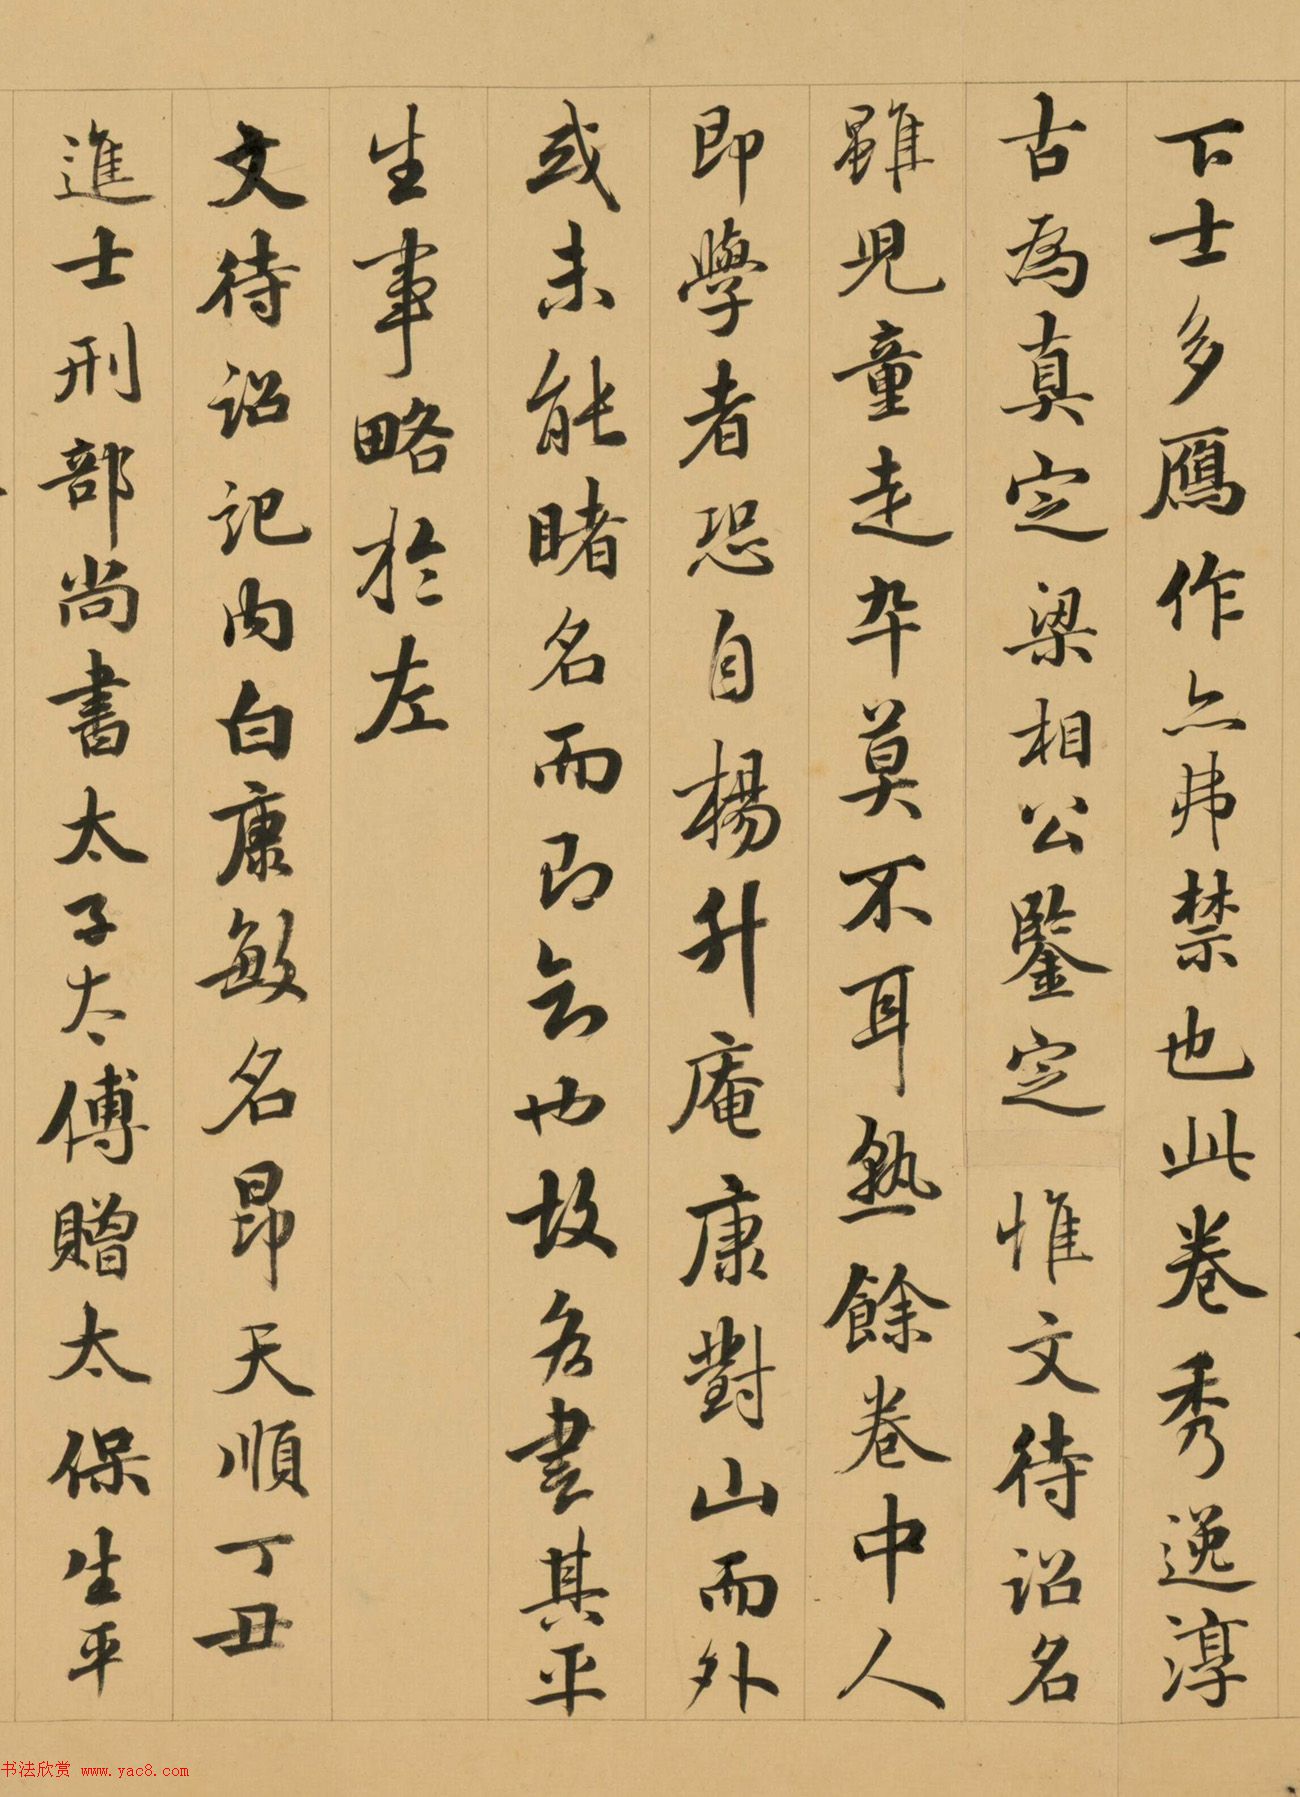 下士多鴈作亦弗禁也此卷秀逸淳
古為真定梁相公鑒定惟文待詔名
雖児童走卒莫不耳熟餘卷中人
即學者恐自楊升庵康對山而外
或未能睹名而即会也故各書其平
生事略於左
文待詔記内白康敏名昂天順丁丑
進士刑部尚書太子太傅贈太保生平
书法欣赏 www.yac8.com